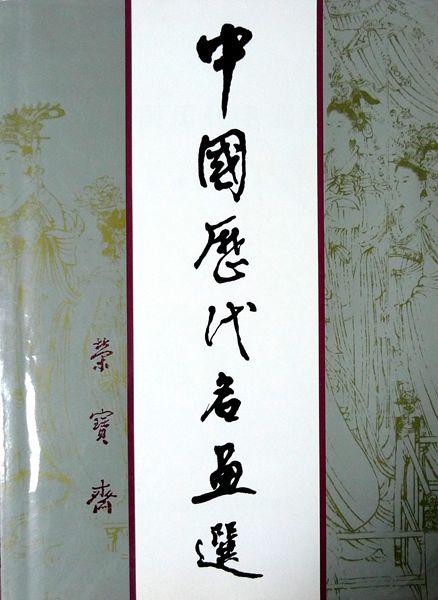 中國歷代名畫選
榮寶齋